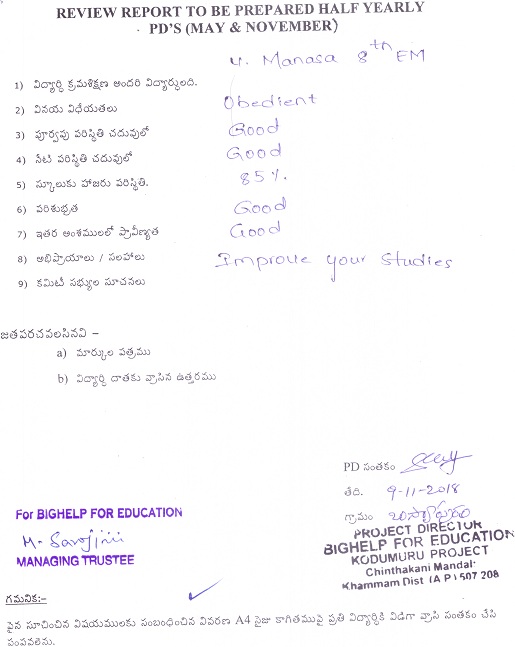 REVIEW REPORT TO BE PREPARED HALF YEARLY
PD'S (MAY & NOVEMBER)
y. Manasa 8th EM
1) విద్యార్థి క్రమశిక్షణ అందరి విద్యార్థులది.
2) వినయ విధేయతలు Obedient
3) పూర్వపు పరిస్థితి చదువులో Good
4) నేటి పరిస్థితి చదువులో Good
5) స్కూలుకు హాజరు పరిస్థితి. 85%.
6) పరిశుభ్రత Good
7) ఇతర అంశములలో ప్రావీణ్యత Good
8) అభిప్రాయాలు / సలహాలు Improve your studies
9) కమిటీ సభ్యుల సూచనలు
జతపరచవలసినవి –
a) మార్కుల పత్రము
b) విద్యార్థి దాతకు వ్రాసిన ఉత్తరము
PD సంతకం
తేది. 9-11-2018
గ్రామం
For BIGHELP FOR EDUCATION
M. Sarojini
MANAGING TRUSTEE
PROJECT DIRECTOR
BIGHELP FOR EDUCATION
KODUMURU PROJECT
Chinthakani Mandal:
Khammam Dist (A P) 507 208
గమనిక:–
పైన సూచించిన విషయములకు సంబంధించిన వివరణ A4 సైజు కాగితముపై ప్రతి విద్యార్థికి విడిగా వ్రాసి సంతకం చేసి
పంపవలెను.